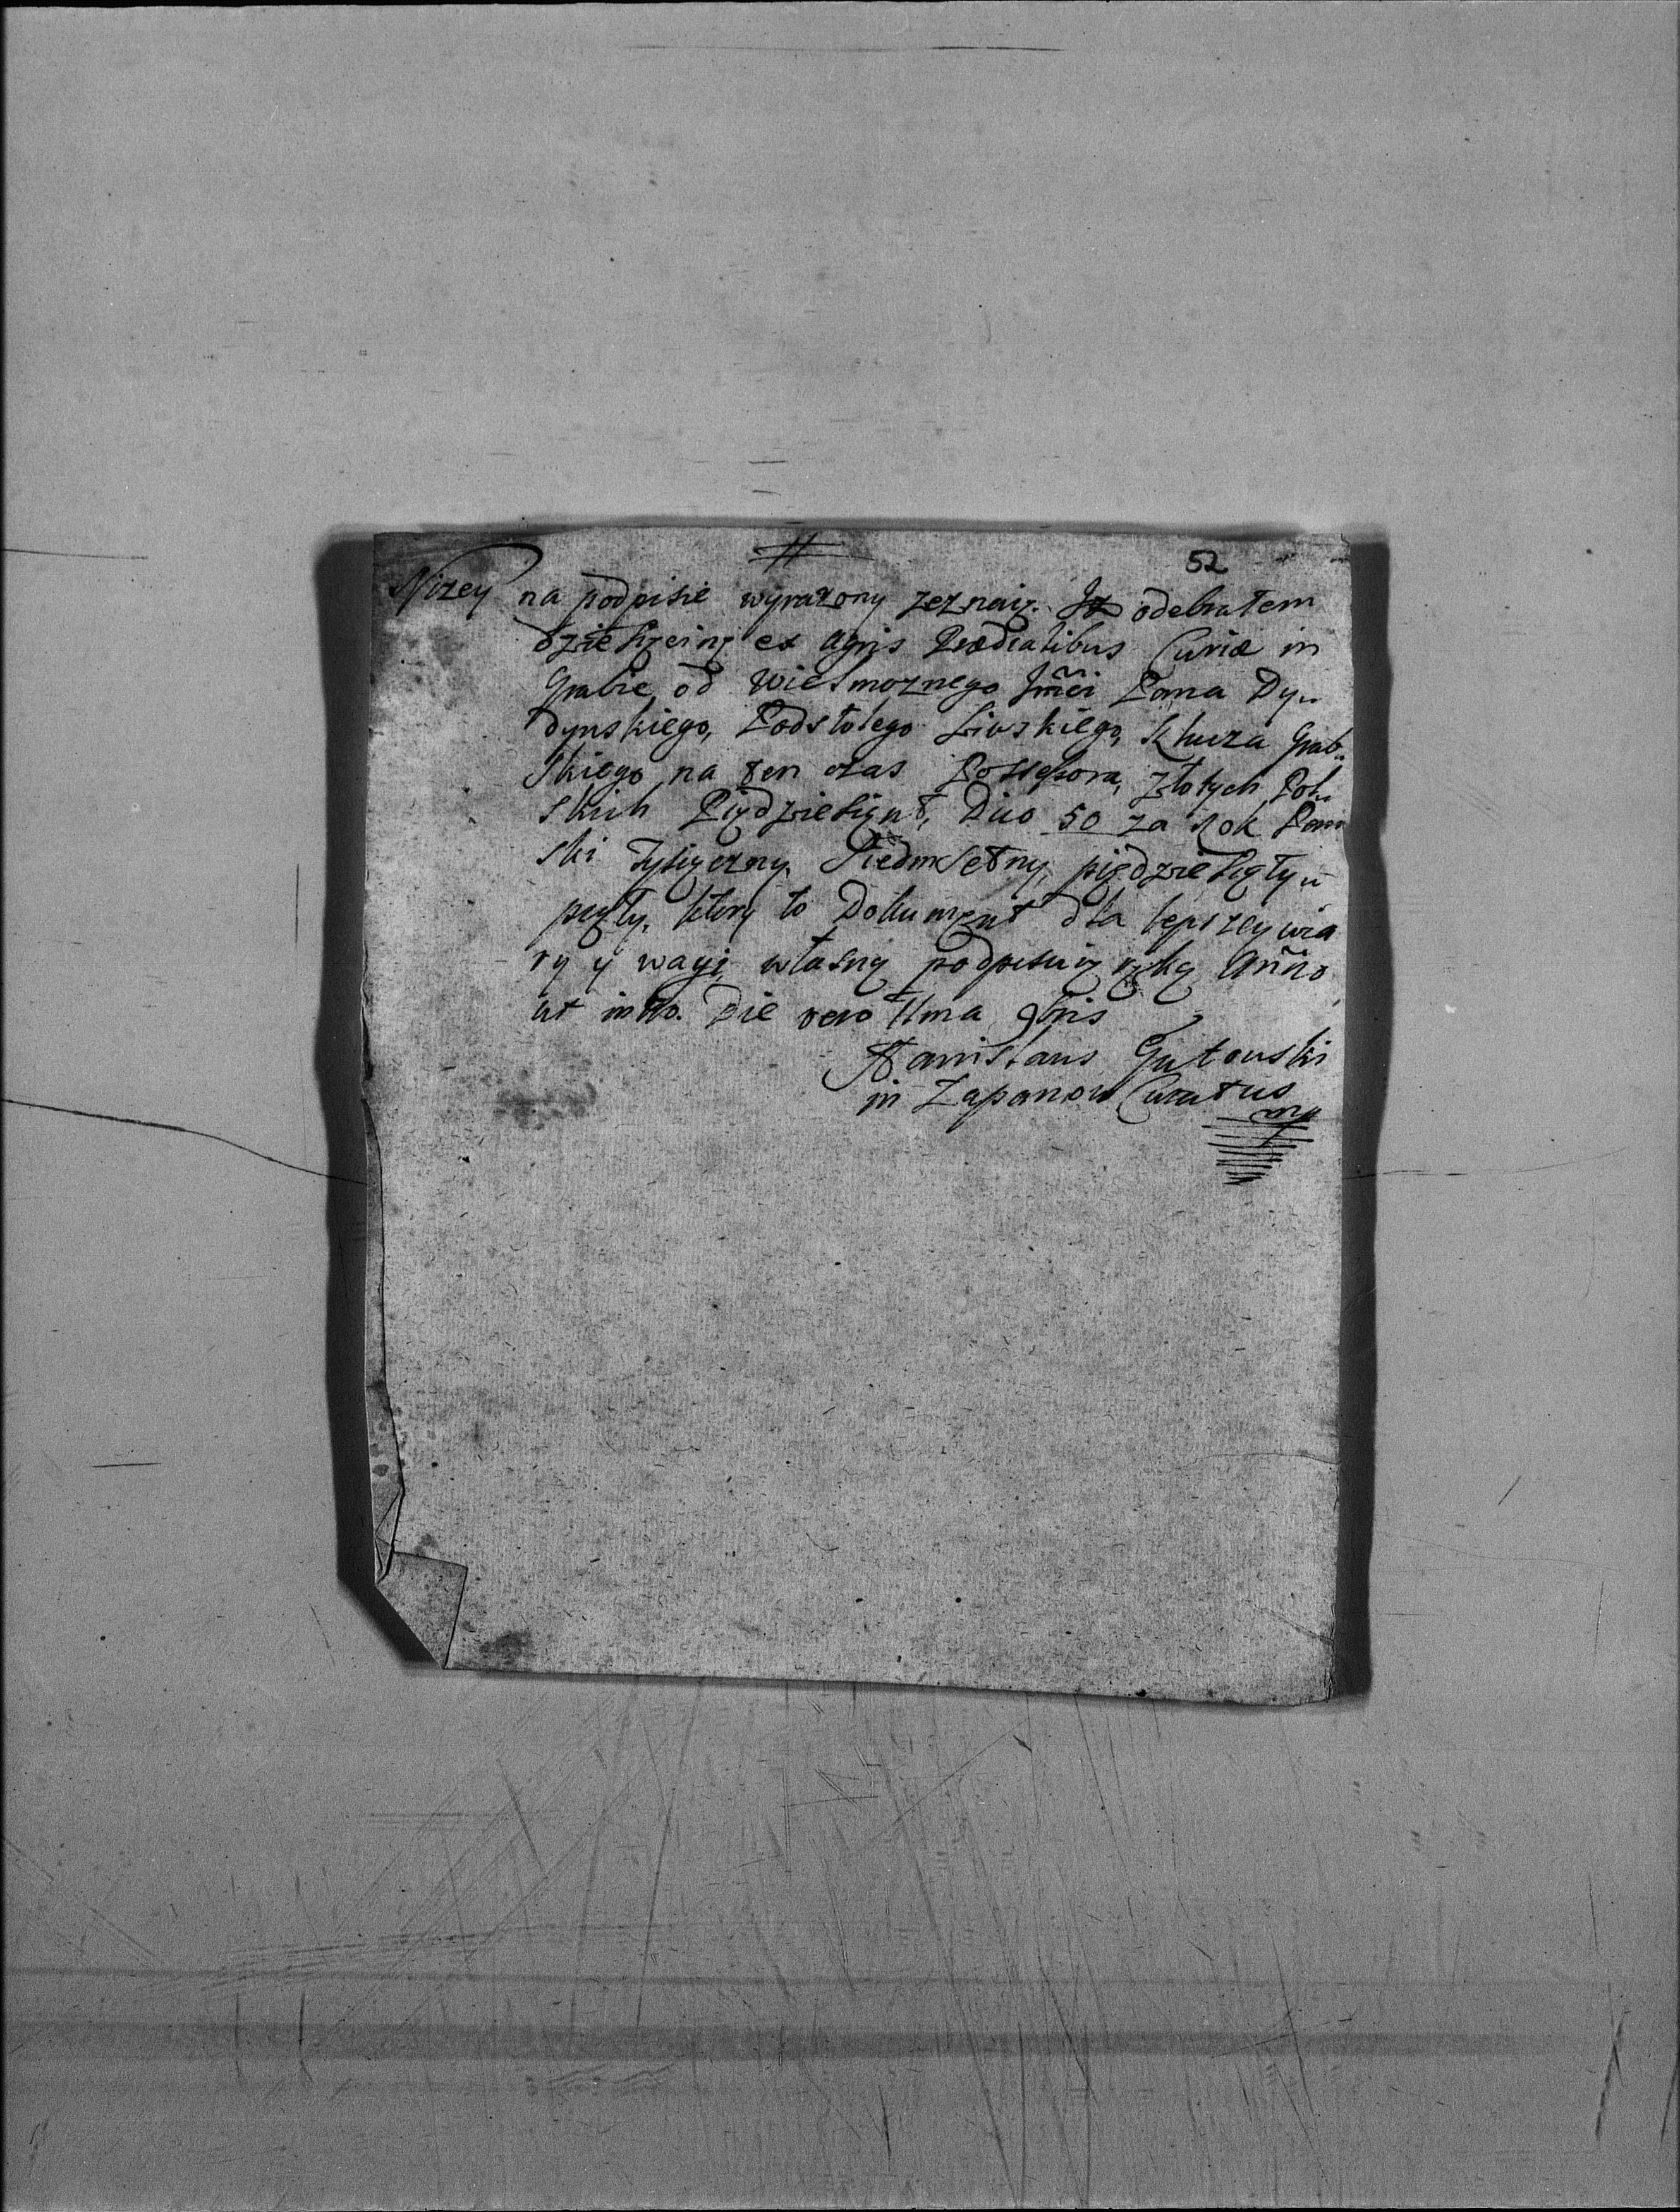 52
Nizey na podpisie wyrazony zeznaię. Iz odebrałem
dziesięcinę ex agris Prædialibus Curiæ in
Grabie, od Wielmoznego Jmći Pana Dy..
dynskiego, Podstolego Liwskiego, Klucza Grab..
skiego na ten czas Possessora, złotych Pol..
skich Piędziesiąnt, Dico 50 za Rok Pan..
ski Tysięczny, Siedmsetny, pięдziesięty..
pięty. który to Dokument dla lepszey wia
ry y wagi, własną podpisuię ręką Añno
ut intro. Die vero 11ma 9bris
Stanislaus Gutouski
in Zapanow Curatus
mp